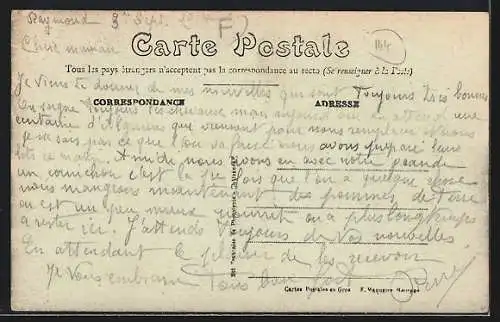 Raymond 9 Sept.
Chère maman
Carte Postale
Tous les pays étrangers n'acceptent pas la correspondance au recto (Se renseigner à la Poste)
Je viens te donner de mes nouvelles qui sont toujours très bonnes
CORRESPONDANCE
ADRESSE
On soigne toujours les chevaux mais aujourd'hui on attend une
centaine d'Algériens qui viennent pour nous remplacer
je ne sais pas ce que l'on va faire nous avons
dits ce matin. A midi nous avons eu avec notre viande
un cornichon c'est la fois que l'on a quelque chose
nous mangeons maintenant des pommes de terre
on est un peu mieux nourrit on a plus longtemps
à rester ici. J'attends toujours de vos nouvelles
En attendant le plaisir de les recevoir
Je vous embrasse tous bien fort
Cartes Postales en Gros